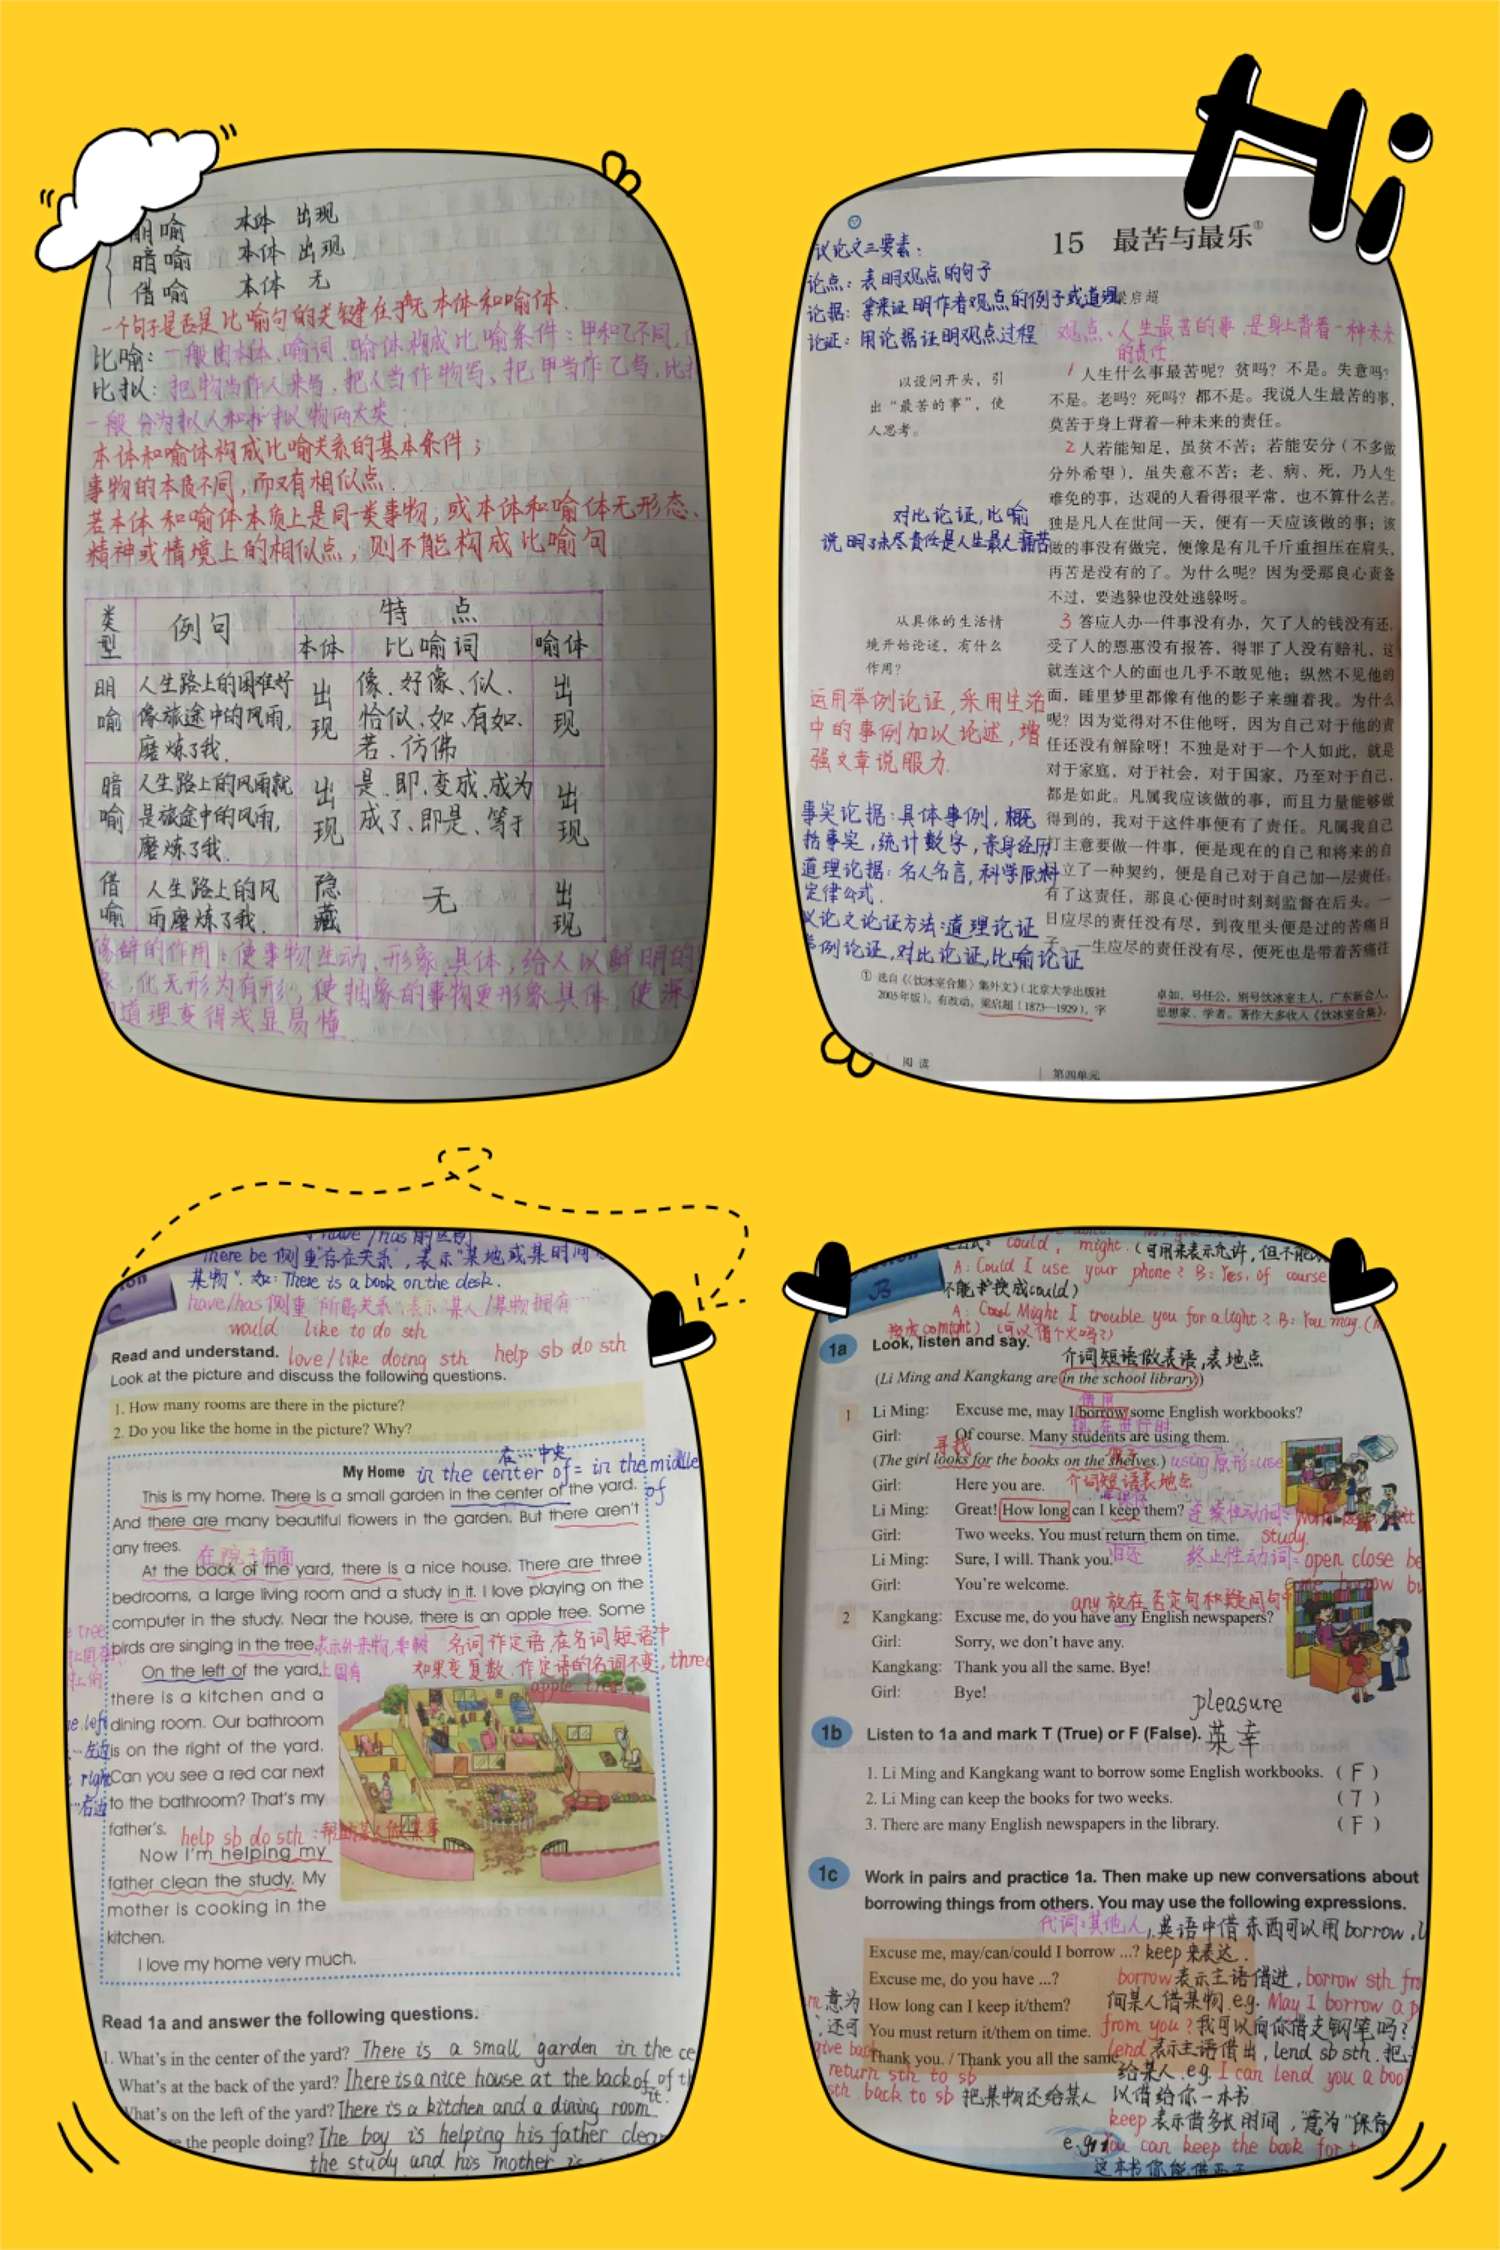 Hi
明喻 本体 出现
暗喻 本体 出现
借喻 本体 无
一个句子是否是比喻句的关键在于有无本体和喻体.
比喻: 一般由本体、喻词、喻体构成比喻条件:甲和乙不同,
比拟: 把物当作人来写、把人当作物写、把甲当作乙写,比拟
一般分为拟人和拟物两大类.
本体和喻体构成比喻关系的基本条件;
事物的本质不同,而又有相似点.
若本体和喻体本质上是同一类事物;或本体和喻体无形态、
精神或情境上的相似点,则不能构成比喻句
类型 例句 特点
本体 比喻词 喻体
明喻 人生路上的困难好像旅途中的风雨,磨炼了我. 出现 像、好像、似、恰似、如、有如、若、仿佛 出现
暗喻 人生路上的风雨就是旅途中的风雨,磨炼了我. 出现 是、即、变成、成为成了、即是、等于 出现
借喻 人生路上的风雨磨炼了我. 隐藏 无 出现
修辞的作用:使事物生动、形象、具体,给人以鲜明的
化无形为有形,使抽象的事物更形象具体,使深
道理变得浅显易懂.
15 最苦与最乐①
梁启超
议论文三要素:
论点:表明观点的句子
论据:拿来证明作者观点的例子或道理
论证:用论据证明观点过程
观点、人生最苦的事是身上背着一种未来
的责任
以设问开头,引
出“最苦的事”,使
人思考。
1 人生什么事最苦呢?贫吗?不是。失意吗?
不是。老吗?死吗?都不是。我说人生最苦的事,
莫苦于身上背着一种未来的责任。
2 人若能知足,虽贫不苦;若能安分(不多做
分外希望),虽失意不苦;老、病、死,乃人生
难免的事,达观的人看得很平常,也不算什么苦。
独是凡人在世间一天,便有一天应该做的事;该
做的事没有做完,便像是有几千斤重担压在肩头,
再苦是没有的了。为什么呢?因为受那良心责备
不过,要逃躲也没处逃躲呀。
对比论证,比喻
说明了未尽责任是人生最大痛苦
从具体的生活情
境开始论述,有什么
作用?
3 答应人办一件事没有办,欠了人的钱没有还,
受了人的恩惠没有报答,得罪了人没有赔礼,这
就连这个人的面也几乎不敢见他;纵然不见他的
面,睡里梦里都像有他的影子来缠着我。为什么
呢?因为觉得对不住他呀,因为自己对于他的责
任还没有解除呀!不独是对于一个人如此,就是
对于家庭,对于社会,对于国家,乃至对于自己,
都是如此。凡属我应该做的事,而且力量能够做
得到的,我对于这件事便有了责任。凡属我自己
打主意要做一件事,便是现在的自己和将来的自
立了一种契约,便是自己对于自己加一层责任。
有了这责任,那良心便时时刻刻监督在后头。一
日应尽的责任没有尽,到夜里头便是过的苦痛日
一生应尽的责任没有尽,便死也是带着苦痛往
运用举例论证,采用生活
中的事例加以论述,增
强文章说服力.
事实论据:具体事例,概
括事实,统计数字,亲身经历
道理论据:名人名言,科学原料
定律公式.
议论文论证方法:道理论证
举例论证,对比论证,比喻论证
① 选自《〈饮冰室合集〉集外文》(北京大学出版社
2005年版)。有改动。梁启超(1873—1929),字
卓如,号任公,别号饮冰室主人,广东新会人,
思想家、学者。著作大多收入《饮冰室合集》。
阅读
第四单元
have/has的区别
There be 侧重“存在关系”,表示“某地或某时间
某物”.如:There is a book on the desk.
have/has侧重“所属关系”,表示“某人/某物拥有…”
would like to do sth
love/like doing sth help sb do sth
C
Read and understand.
Look at the picture and discuss the following questions.
1. How many rooms are there in the picture?
2. Do you like the home in the picture? Why?
在…中央
My Home in the center of = in the middle of
This is my home. There is a small garden in the center of the yard.
And there are many beautiful flowers in the garden. But there aren't
any trees.
在院子后面
At the back of the yard, there is a nice house. There are three
bedrooms, a large living room and a study in it. I love playing on the
computer in the study. Near the house, there is an apple tree. Some
birds are singing in the tree.
名词作定语,在名词短语中
如果变复数,作定语的名词不变, three
apple trees
On the left of the yard,
there is a kitchen and a
dining room. Our bathroom
is on the right of the yard.
Can you see a red car next
to the bathroom? That's my
father's.
help sb do sth:帮助某人做某事
Now I'm helping my
father clean the study. My
mother is cooking in the
kitchen.
I love my home very much.
Read 1a and answer the following questions.
1. What's in the center of the yard? There is a small garden in the ce
What's at the back of the yard? There is a nice house at the back of
What's on the left of the yard? There is a kitchen and a dining room
the people doing? The boy is helping his father clean
the study and his mother is
could, might.(可用来表示允许,但不能
A: Could I use your phone? B: Yes, of course
不能步换成could)
Might I trouble you for a light? B: You may.
(可以借个火吗?)
B
1a Look, listen and say.
介词短语做表语,表地点
(Li Ming and Kangkang are in the school library.)
借用
1 Li Ming: Excuse me, may I borrow some English workbooks?
现在进行时
Girl: Of course. Many students are using them.
寻找
(The girl looks for the books on the shelves.) using原形=use
Girl: Here you are. 介词短语表地点
Li Ming: Great! How long can I keep them? 连续性动词=
Girl: Two weeks. You must return them on time. study.
Li Ming: Sure, I will. Thank you. 归还 终止性动词=open close
Girl: You're welcome.
any 放在否定句和疑问句中
2 Kangkang: Excuse me, do you have any English newspapers?
Girl: Sorry, we don't have any.
Kangkang: Thank you all the same. Bye!
Girl: Bye!
pleasure
1b Listen to 1a and mark T (True) or F (False).
1. Li Ming and Kangkang want to borrow some English workbooks. (F)
2. Li Ming can keep the books for two weeks. (T)
3. There are many English newspapers in the library. (F)
1c Work in pairs and practice 1a. Then make up new conversations about
borrowing things from others. You may use the following expressions.
代词:其他人 英语中借东西可以用borrow,
Excuse me, may/can/could I borrow ...? keep来表达.
Excuse me, do you have ...? borrow表示主语借进,borrow sth
How long can I keep it/them? 向某人借某物.e.g. May I borrow a
You must return it/them on time. from you?我可以向你借支钢笔吗?
Thank you. / Thank you all the same. lend表示主语借出, lend sb sth.把
return sth to sb 给某人.e.g. I can lend you a book
sth back to sb 把某物还给某人 以借给你一本书
keep表示借多长时间,意为“保存
e.g. You can keep the book for